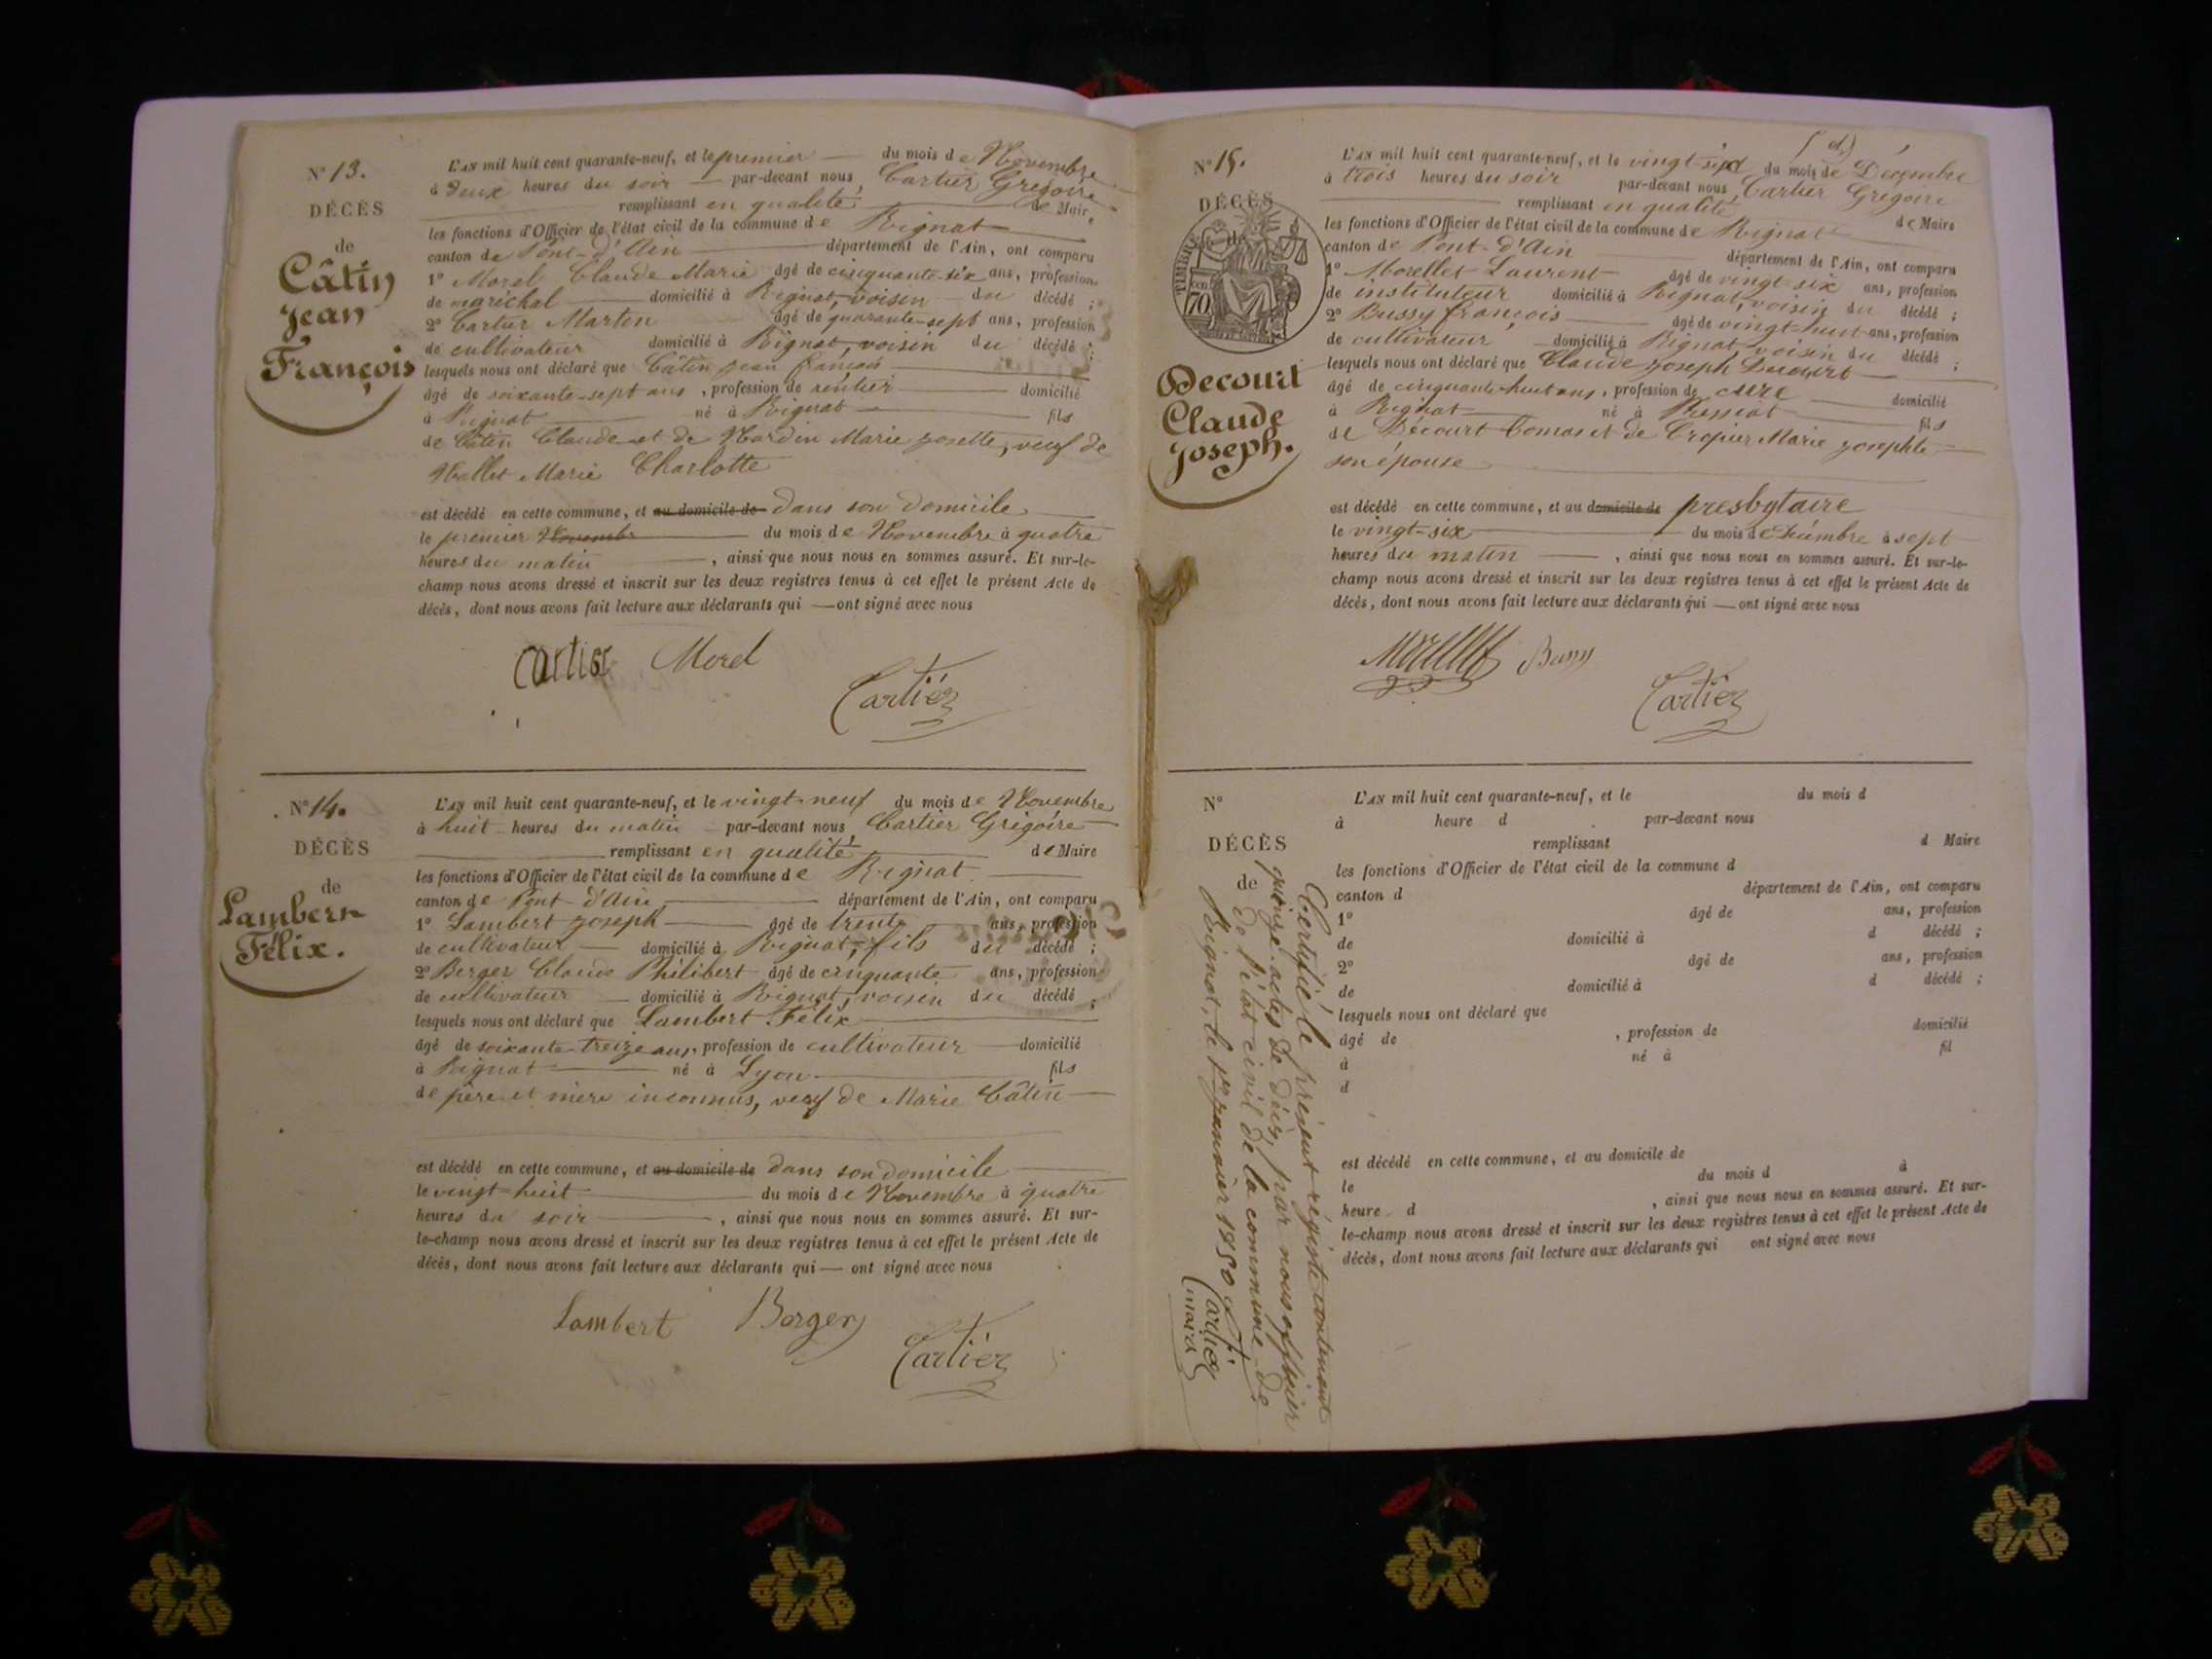 N° 13.
DÉCÈS
de
Câtin
Jean
François
L'AN mil huit cent quarante-neuf, et le premier du mois de Novembre
à deux heures du soir par-devant nous Cartier Grégoire
remplissant en qualité de Maire
les fonctions d'Officier de l'état civil de la commune de Rignat
canton de Pont-d'Ain département de l'Ain, ont comparu
1° Morel Claude Marie âgé de cinquante-six ans, profession
de maréchal domicilié à Rignat, voisin du décédé ;
2° Cartier Martin âgé de quarante-sept ans, profession
de cultivateur domicilié à Rignat, voisin du décédé ;
lesquels nous ont déclaré que Câtin Jean François
âgé de soixante-sept ans, profession de rentier domicilié
à Rignat né à Rignat fils
de Câtin Claude et de Nardin Marie Josette, veuf de
Mallet Marie Charlotte
est décédé en cette commune, et au domicile de dans son domicile
le premier Novembre du mois de Novembre à quatre
heures du matin, ainsi que nous nous en sommes assuré. Et sur-le-
champ nous avons dressé et inscrit sur les deux registres tenus à cet effet le présent Acte de
décès, dont nous avons fait lecture aux déclarants qui — ont signé avec nous
Cartier Morel
Cartier
N° 14.
DÉCÈS
de
Lambert
Félix.
L'AN mil huit cent quarante-neuf, et le vingt-neuf du mois de Novembre
à huit heures du matin par-devant nous Cartier Grégoire
remplissant en qualité de Maire
les fonctions d'Officier de l'état civil de la commune de Rignat
canton de Pont-d'Ain département de l'Ain, ont comparu
1° Lambert Joseph âgé de trente ans, profession
de cultivateur domicilié à Rignat, fils du décédé ;
2° Berger Claude Philibert âgé de cinquante ans, profession
de cultivateur domicilié à Rignat, voisin du décédé ;
lesquels nous ont déclaré que Lambert Félix
âgé de soixante-treize ans, profession de cultivateur domicilié
à Rignat né à Lyon fils
de père et mère inconnus, veuf de Marie Câtin
est décédé en cette commune, et au domicile de dans son domicile
le vingt-huit du mois de Novembre à quatre
heures du soir, ainsi que nous nous en sommes assuré. Et sur-
le-champ nous avons dressé et inscrit sur les deux registres tenus à cet effet le présent Acte de
décès, dont nous avons fait lecture aux déclarants qui — ont signé avec nous
Lambert Berger
Cartier
N° 15.
DÉCÈS
de
TIMBRE
70
Decourt
Claude
Joseph.
L'AN mil huit cent quarante-neuf, et le vingt-sept du mois de Décembre
à trois heures du soir par-devant nous Cartier Grégoire
remplissant en qualité de Maire
les fonctions d'Officier de l'état civil de la commune de Rignat
canton de Pont-d'Ain département de l'Ain, ont comparu
1° Morellet Laurent âgé de vingt-six ans, profession
de instituteur domicilié à Rignat, voisin du décédé ;
2° Bussy François âgé de vingt-huit ans, profession
de cultivateur domicilié à Rignat voisin du décédé ;
lesquels nous ont déclaré que Claude Joseph Decourt
âgé de cinquante-huit ans, profession de curé domicilié
à Rignat né à fils
de Décourt Comas et de Cropier Marie Josephte
son épouse
est décédé en cette commune, et au domicile de presbytaire
le vingt-six du mois de Décembre à sept
heures du matin, ainsi que nous nous en sommes assuré. Et sur-le-
champ nous avons dressé et inscrit sur les deux registres tenus à cet effet le présent Acte de
décès, dont nous avons fait lecture aux déclarants qui — ont signé avec nous
Morellet Bussy
Cartier
N°
DÉCÈS
de
L'AN mil huit cent quarante-neuf, et le du mois d
à heure d par-devant nous
remplissant d Maire
les fonctions d'Officier de l'état civil de la commune d
canton d département de l'Ain, ont comparu
1° âgé de ans, profession
de domicilié à d décédé ;
2° âgé de ans, profession
de domicilié à d décédé ;
lesquels nous ont déclaré que
âgé de , profession de domicilié
à né à fil
d
est décédé en cette commune, et au domicile de
le du mois d à
heure d , ainsi que nous nous en sommes assuré. Et sur-
le-champ nous avons dressé et inscrit sur les deux registres tenus à cet effet le présent Acte de
décès, dont nous avons fait lecture aux déclarants qui ont signé avec nous
Certifié le présent régistre contenant
quinze actes de décès, par nous officier
de l'état civil de la commune de
Rignat, le 1er janvier 1850
Cartier
maire